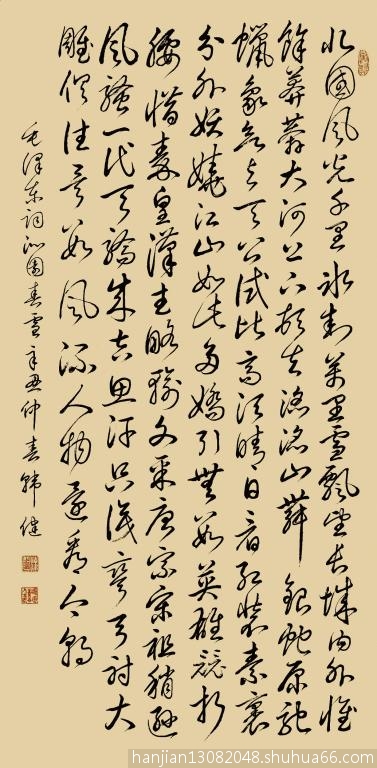 北國风光千里冰封萬里雪飄望长城内外惟
餘莽莽大河上下顿失滔滔山舞銀蛇原馳
蠟象欲与天公试比高须晴日看红装素裹
分外妖嬈江山如此多嬌引無数英雄競折
腰惜秦皇漢武略输文采唐宗宋祖稍遜
风骚一代天驕成吉思汗只识彎弓射大
雕俱往矣数风流人物还看今朝
毛泽东词沁園春雪辛丑仲春韩健
hanjian13082048.shuhua66.com